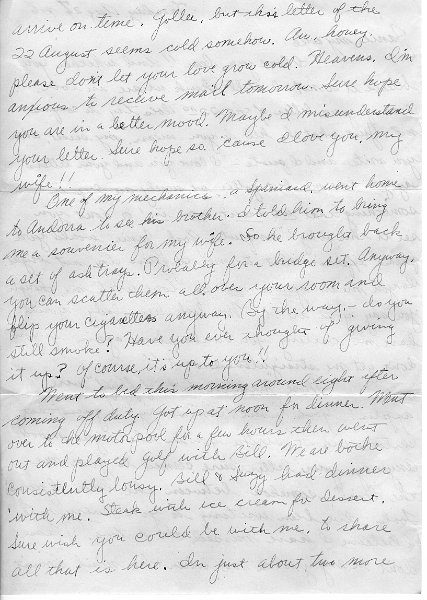 arrive on time. Gollee, but this letter of the
22 August seems cold somehow. Aw, honey,
please don't let your love grow cold. Heavens, I'm
anxious to receive mail tomorrow. Sure hope
you are in a better mood. Maybe I misunderstand
your letter. Sure hope so 'cause I love you, my
wife!!
One of my mechanics, a Spaniard, went home
to Andorra to see his brother. I told him to bring
me a souvenier for my wife. So he brought back
a set of ash trays. Probably for a bridge set. Anyway,
you can scatter them all over your room and
flip your cigarettes anyway. By the way, - do you
still smoke? Have you ever thought of giving
it up? Of course, it's up to you!!
Went to bed this morning around eight after
coming off duty. Got up at noon for dinner. Went
over to the motor pool for a few hours then went
out and played golf with Bill. We are bothe
consistently lousy. Bill & Suzy had dinner
with me. Steak with ice cream for dessert.
Sure wish you could be with me, to share
all that is here. In just about two more